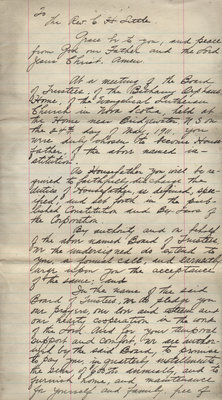 To
The Rev. C. H. Little
Grace be to you, and peace
from God our Father and the Lord
Jesus Christ. Amen.
At a meeting of the Board
of Trustees, of the Bethany Orphans
Home, of the Evangelical Lutheran
Church in Nova Scotia, held at
the Home near Bridgewater N.S. on
the 24th day of May, 1911, you
were duly chosen to become House
Father, of the above named in-
stitution.
As Housefather you will be re-
quired to faithfully discharge the
duties of Housefather, as defined, speci-
fied, and set forth in the pub-
lished Constitution and By-Laws of
the Corporation.
By authority and on behalf
of the above named Board of Trustees,
We the undersigned do extend to
you, a formal call, and earnestly
urge upon you the acceptance
of the same; and
In the name of the said
Board of Trustees, we do pledge you
our prayers, our love and esteem and
our hearty cooperation in the work
of the Lord. And for your temporal
support and comfort, we are author-
ized by the said Board, to promise
to pay you in quarterly installments
the sum of annually, and to
furnish home, and maintenance
for yourself and family, free of